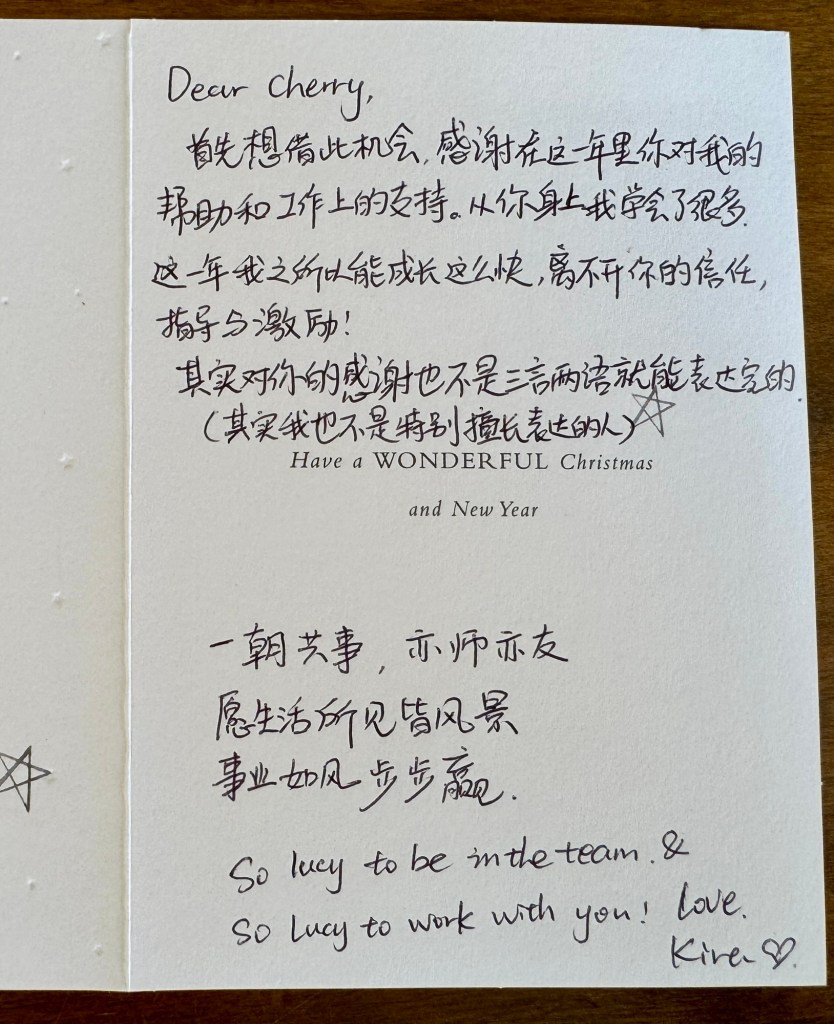 Dear Cherry,
首先想借此机会,感谢在这一年里你对我的
帮助和工作上的支持。从你身上我学会了很多.
这一年我之所以能成长这么快,离不开你的信任,
指导与激励!
其实对你的感谢也不是三言两语就能表达完的.
(其实我也不是特别擅长表达的人)
Have a WONDERFUL Christmas
and New Year
一朝共事,亦师亦友
愿生活所见皆风景
事业如风步步赢.
So lucy to be in the team. &
So Lucy to work with you! Love.